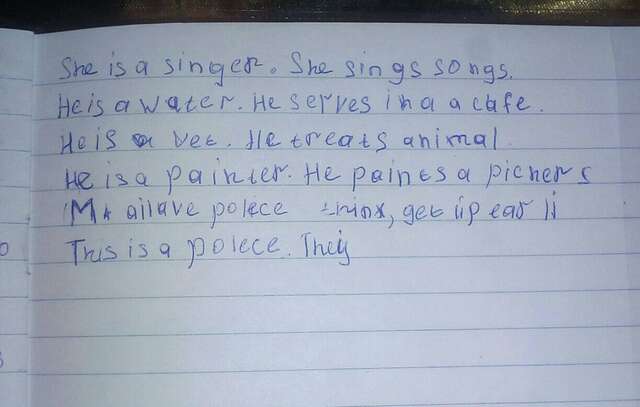 She is a singer. She sings songs.
He is a water. He serves in a a cafe.
He is a vet. He treats animal
He is a painter. He paints a pichers
polece get up ear
This is a polece. They